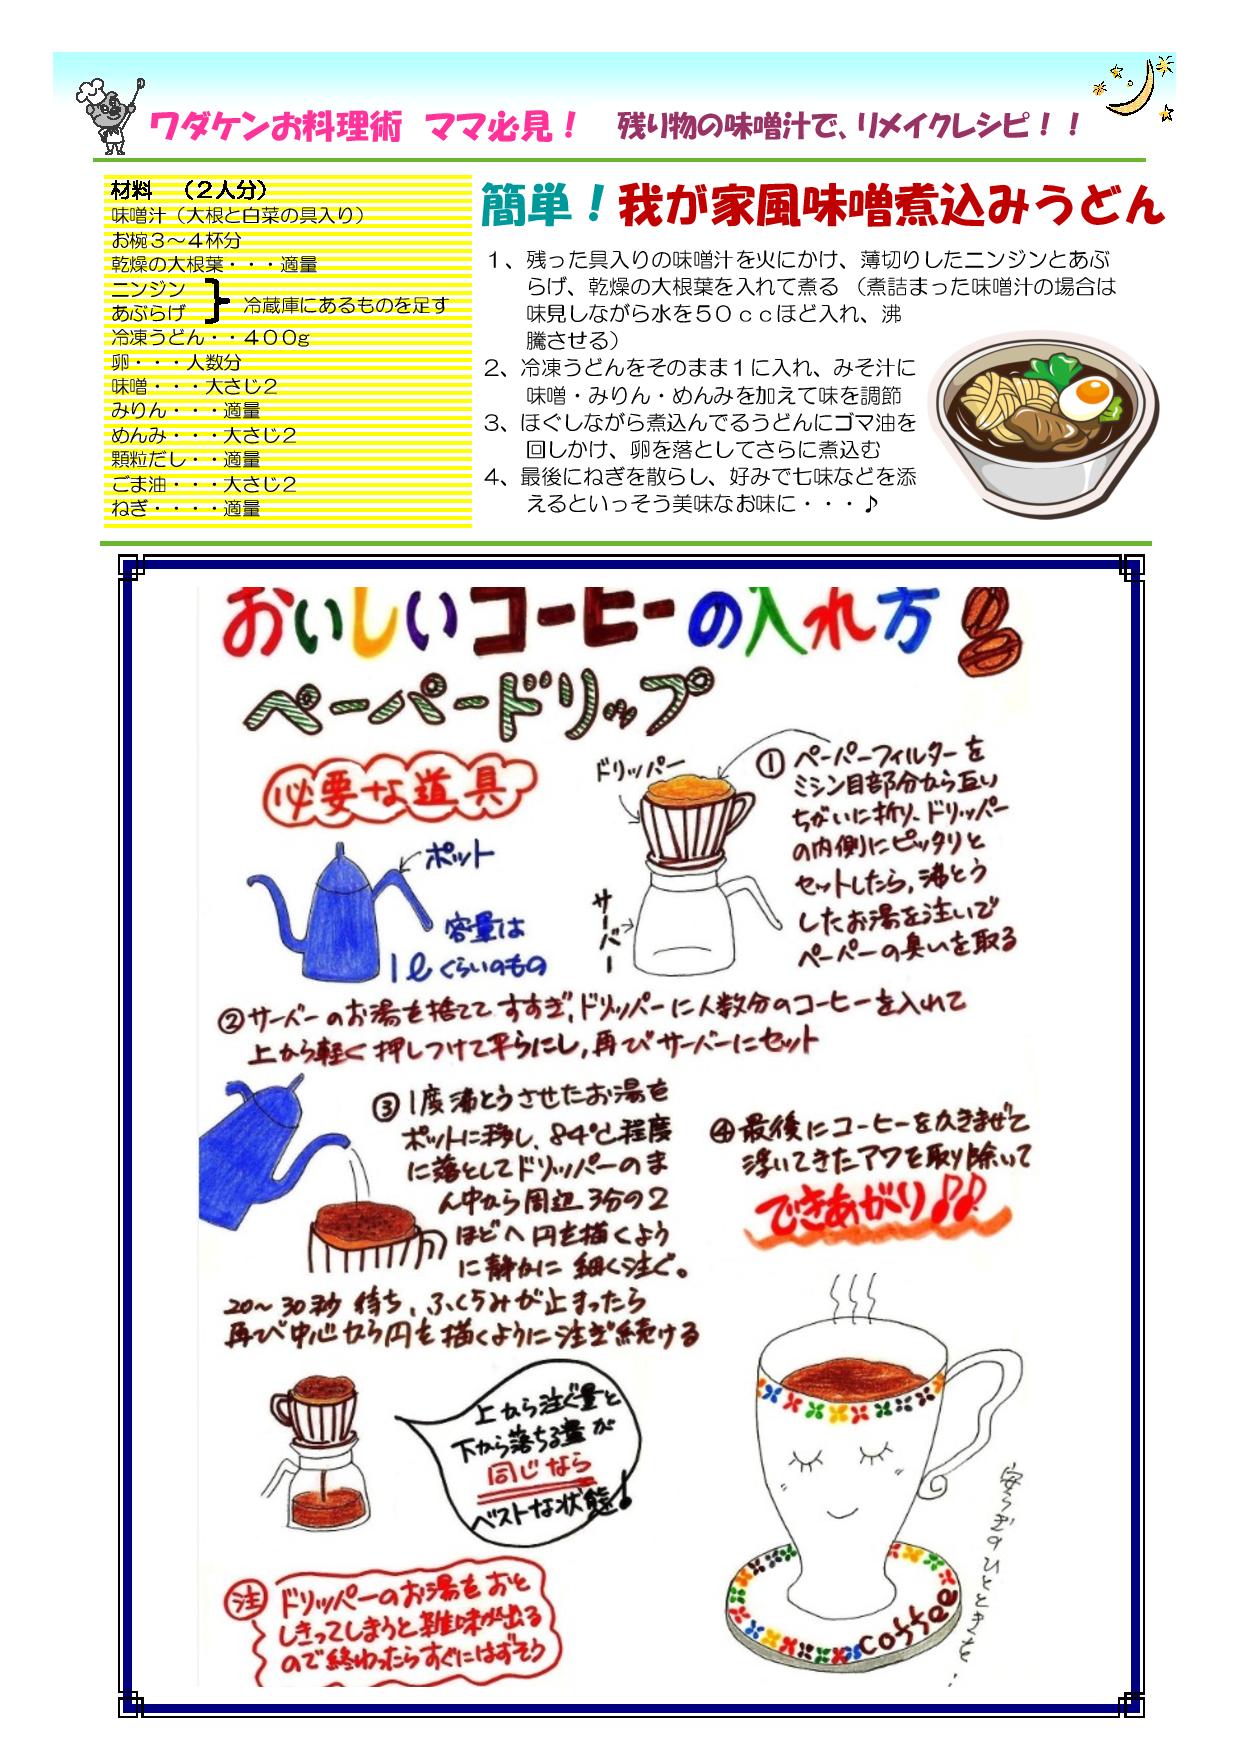 ワダケンお料理術　ママ必見！　残り物の味噌汁で、リメイクレシピ！！
材料　（２人分）
味噌汁（大根と白菜の具入り）
お椀３～４杯分
乾燥の大根葉・・・適量
ニンジン
あぶらげ
冷蔵庫にあるものを足す
冷凍うどん・・４００g
卵・・・人数分
味噌・・・大さじ２
みりん・・・適量
めんみ・・・大さじ２
顆粒だし・・適量
ごま油・・・大さじ２
ねぎ・・・・適量
簡単！我が家風味噌煮込みうどん
１、残った具入りの味噌汁を火にかけ、薄切りしたニンジンとあぶ
らげ、乾燥の大根葉を入れて煮る （煮詰まった味噌汁の場合は
味見しながら水を５０ｃｃほど入れ、沸
騰させる）
２、冷凍うどんをそのまま１に入れ、みそ汁に
味噌・みりん・めんみを加えて味を調節
３、ほぐしながら煮込んでるうどんにゴマ油を
回しかけ、卵を落としてさらに煮込む
４、最後にねぎを散らし、好みで七味などを添
えるといっそう美味なお味に・・・♪
おいしいコーヒーの入れ方
ペーパードリップ
必要な道具
ポット
容量は
1ℓくらいのもの
ドリッパー
サーバー
① ペーパーフィルターを
ミシン目部分から互い
ちがいに折り、ドリッパー
の内側にピッタリと
セットしたら、沸とう
したお湯を注いで
ペーパーの臭いを取る
②サーバーのお湯を捨ててすすぎ、ドリッパーに人数分のコーヒーを入れて
上から軽く押しつけて平らにし、再びサーバーにセット
③1度沸とうさせたお湯を
ポットに移し、84℃程度
に落としてドリッパーのま
ん中から周辺3分の2
ほどへ円を描くよう
に静かに細く注ぐ。
20～30秒待ち、ふくらみが止まったら
再び中心から円を描くように注ぎ続ける
④最後にコーヒーをかきまぜて
浮いてきたアワを取り除いて
できあがり♪♪
上から注ぐ量と
下から落ちる量が
同じなら
ベストな状態！
注 ドリッパーのお湯をおと
しきってしまうと雑味が出る
ので終わったらすぐにはずそう
coffee
安らぎのひとときを・・